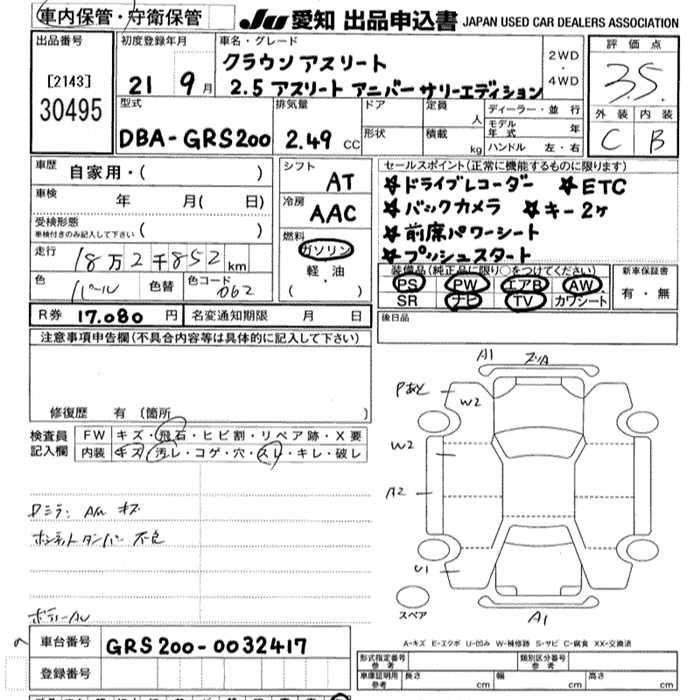 車内保管・守衛保管
JU 愛知 出品申込書 JAPAN USED CAR DEALERS ASSOCIATION
出品番号
[2143]
30495
初度登録年月
21 9月
車名・グレード
クラウンアスリート
2.5 アスリート アニバーサリーエディション
2WD
・
4WD
評価点
3.5
外装 内装
C B
型式
DBA-GRS200
排気量
2.49 CC
ドア
形状
定員
人
積載
kg
ディーラー・並行
モデル年式 年
ハンドル 左・右
車歴
自家用・( )
車検
年 月( 日)
受検形態
車検付きのみ記入して下さい ( )
走行
18万2千852km
色
パール
色替
色コード
062
シフト
AT
冷房
AAC
燃料
ガソリン
軽・油
( )
セールスポイント(正常に機能するものに限ります)
☆ドライブレコーダー ☆ETC
☆バックカメラ ☆キー2ケ
☆前席パワーシート
☆プッシュスタート
装備品(純正品に限り○をつけてください)
PS PW エアB AW
SR ナビ TV カワシート
新車保証書
有・無
R券 17.080 円
名変通知期限 月 日
後日品
注意事項申告欄(不具合内容等は具体的に記入して下さい)
修復歴 有(箇所 )
検査員記入欄
FW キズ・飛石・ヒビ割・リペア跡・X要
内装 キズ・汚レ・コゲ・穴・スレ・キレ・破レ
Dミラー AU キズ
ボンネットダンパー 不良
ボディーAU
A1 ズリA
Pあと
W2
W2
A2
U1
A1
スペア
A-キズ E-エクボ U-凹み W-補修跡 S-サビ C-腐食 XX-交換済
車台番号
GRS200-0032417
登録番号
形式指定番号
参考
類別区分番号
参考
車庫証明用
参考
長さ cm 幅 cm 高さ cm